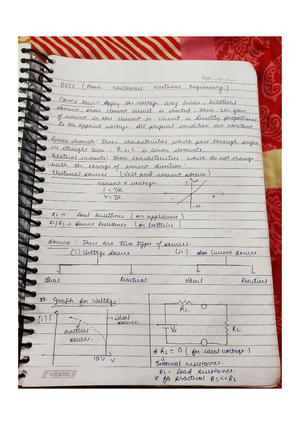 BEEE (Basic Electronics Electrical Engineering)
Ohm's law:- Apply the voltage any linear, bilateral
element, then element circuit is started, then the flow
of current in this element or circuit is directly proportional
to the applied voltage. All physical condition are constant.
Linear element: those characteristics which pass through origin
in straight line. R, L, C is linear elements.
Bilateral elements: Those characteristics which do not change
with the change of current direction.
Electrical sources (Volt and current source)
current ∝ voltage.
I = V/R.
V = IR.
RL → Load Resistance (an appliance)
Ri/RS → Source Resistance (on batteries)
Source: There are two types of source.
(i) Voltage source
(ii) Current Source
Ideal
Practical
Ideal
Practical
Graph for Voltage:
(i) I
→ ideal source.
Practical source.
10V
V
RS
Vs
RL
# RS = 0 (for ideal voltage)
Internal resistance.
RL = Load Resistance.
* for practical RS<<RL